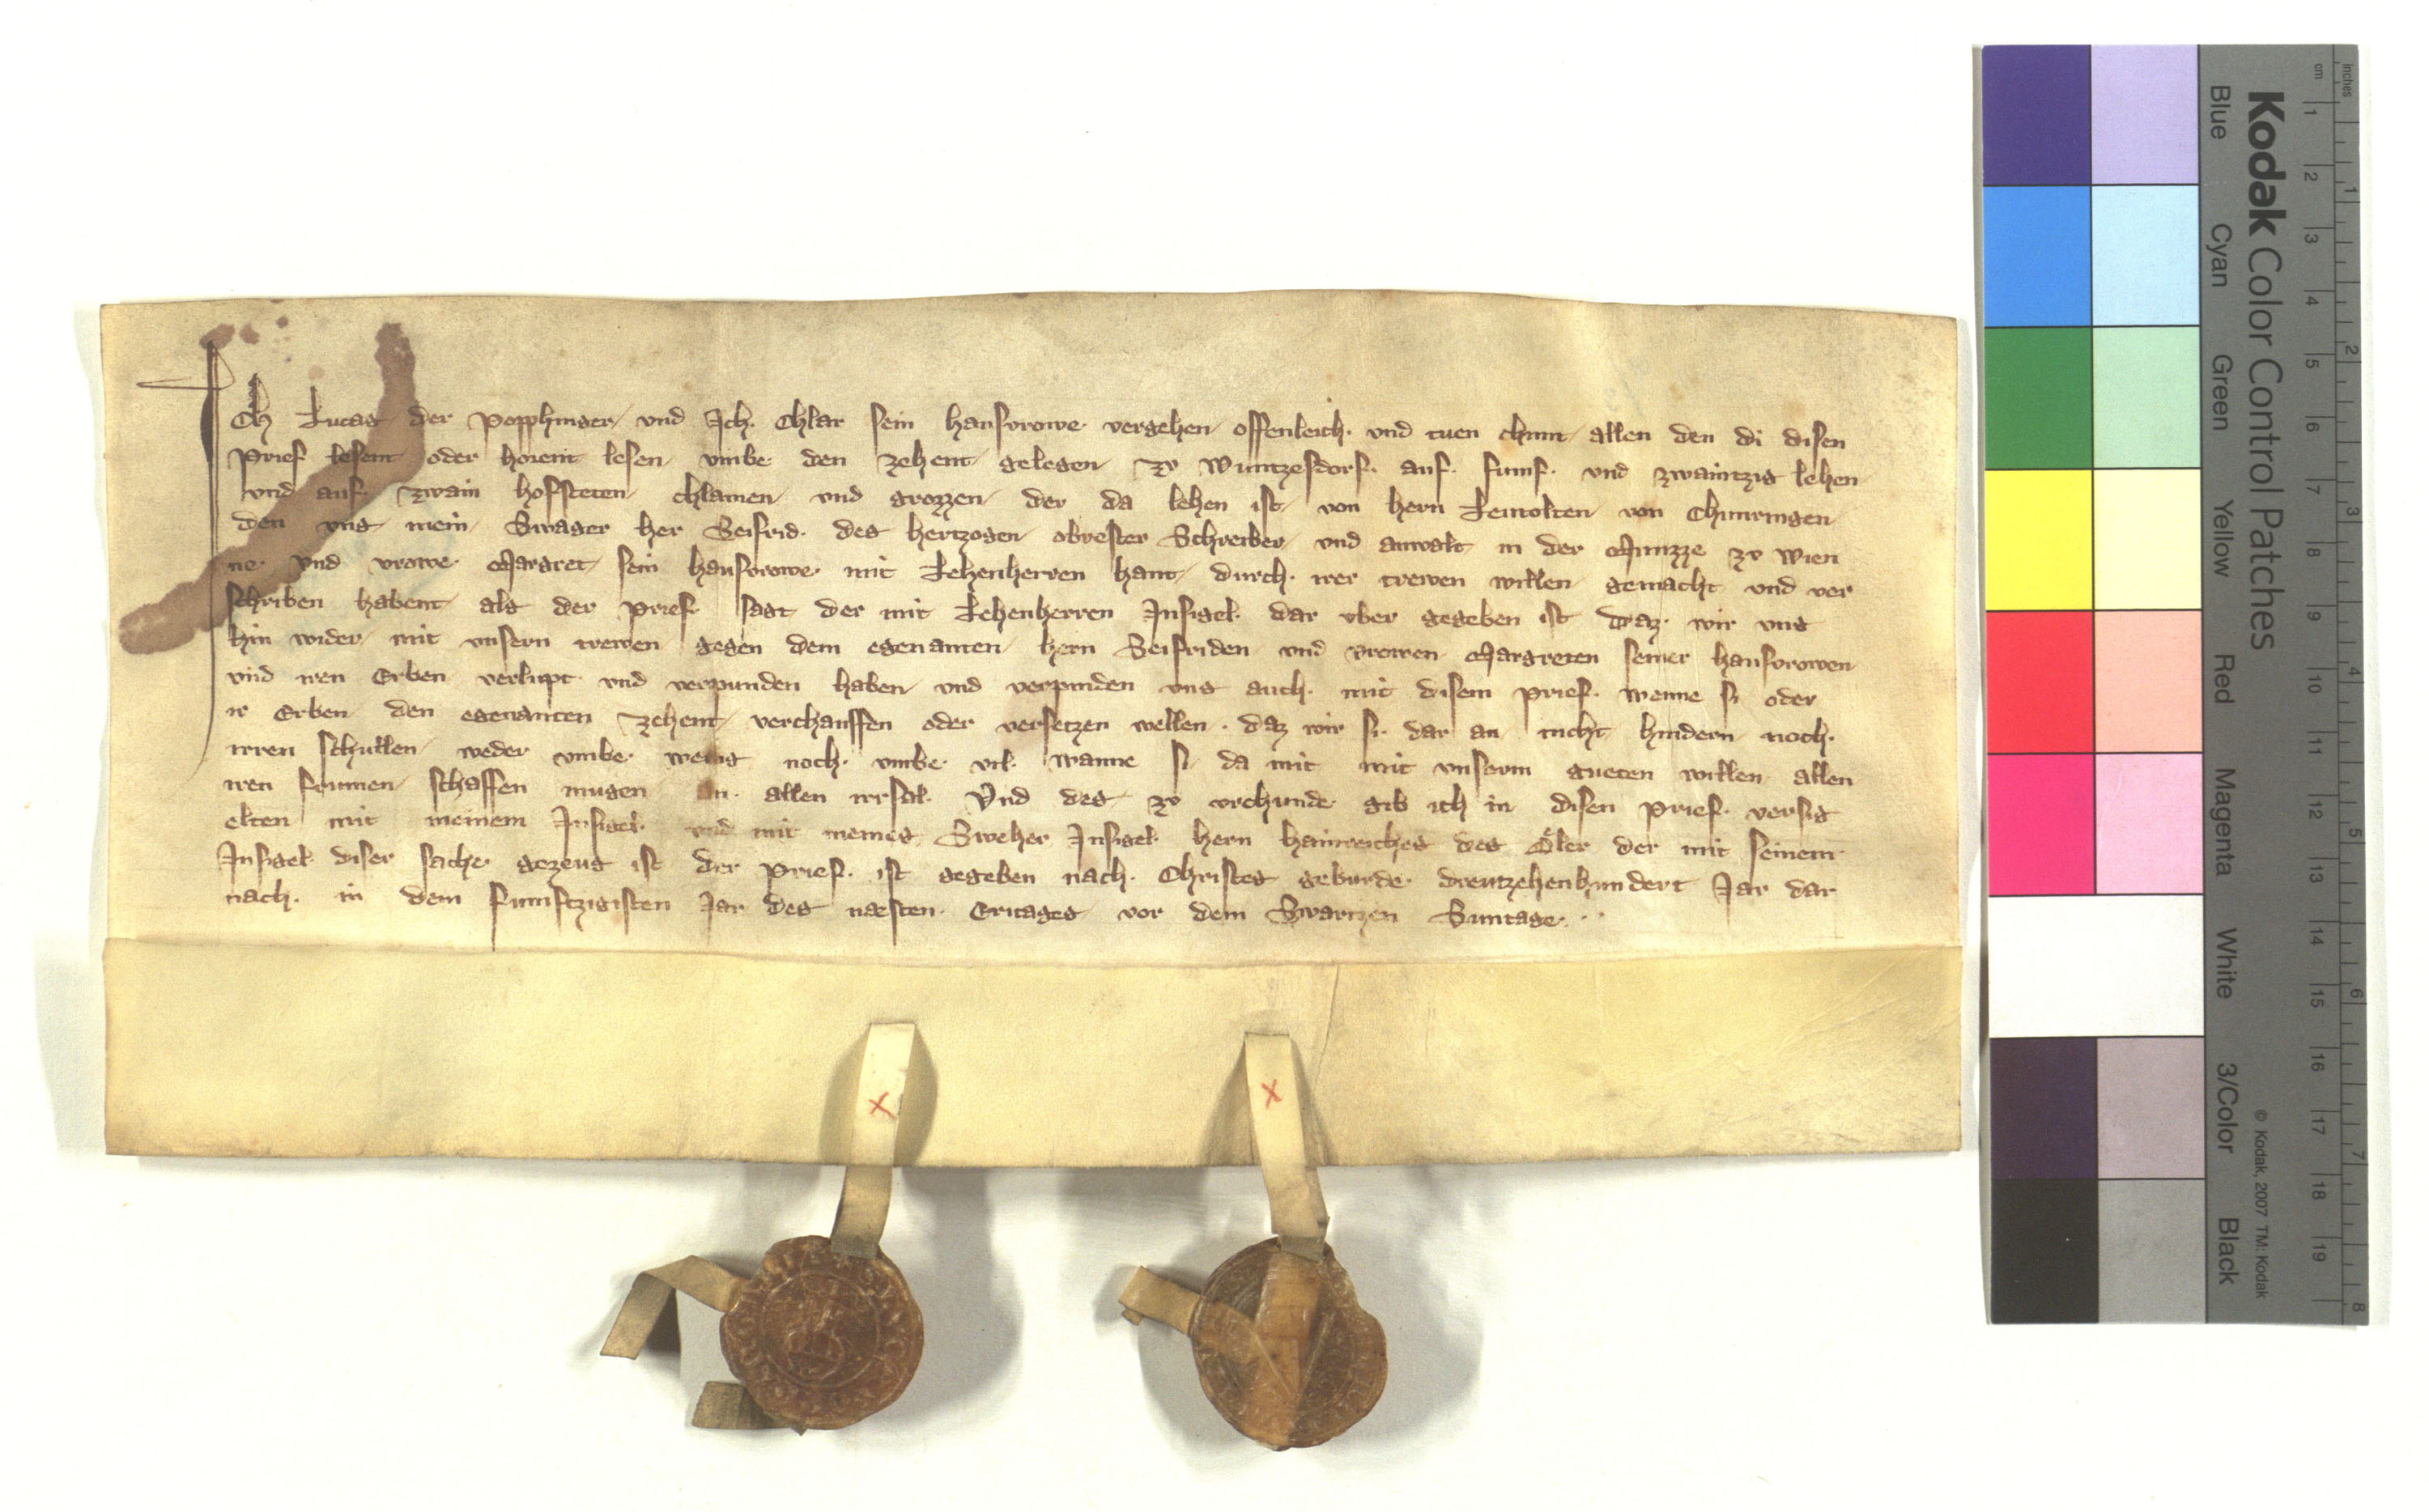 Ich Lucas der Popphinger und Ich Chlar sein hausvrowe vergehen offenleich und tuen chunt allen den di disen
Prief lesent oder horent lesen umbe den zehent gelegen zv Wuntzesdorf auf fumf und zwaintzig lehen
und auf zwain hofsteten chlainen und grozzen der da lehen ist von hern Leutolten von Chunringen
den uns mein Swager her Seifrid des hertzogen obrester Schreiber und anwalt in der Munzze zv Wien
ne und vrowe Margret sein hausvrowe mit Lehenherren hant durch irer trewen willen gemacht und ver
schriben habent als der prief sagt der mit Lehenherren Insigel dar uber gegeben ist daz wir uns
hin wider mit unsern trewen gegen dem egenanten hern Seifriden und vrowen Margreten seiner hausvrowen
und iren Erben verlupt und verpunden haben und verpinden uns auch mit disem prief wenne si oder
ir Erben den egenanten zehent verchauffen oder versetzen wellen daz wir si dar an nicht hindern noch
irren schullen weder umbe wenig noch umbe vil wanne si da mit mit unserm gueten willen allen
iren frumen schaffen mugen an allen irrsal Und des zv urchunde gib ich in disen prief versig
elten mit meinem Insigel und mit meines Sweher Insigel hern Hainreiches des Öler der mit seinem
Insigel diser sache gezeug ist der prief ist gegeben nach Christes geburde dreutzehenhundert Jar dar
nach in dem fumftzigisten Jar des næsten Eritages vor dem Swartzen Suntage
x
x
Kodak Color Control Patches
© Kodak, 2007 TM: Kodak
Blue Cyan Green Yellow Red Magenta White 3/Color Black
cm 1 2 3 4 5 6 7 8 9 10 11 12 13 14 15 16 17 18 19
inches 1 2 3 4 5 6 7 8